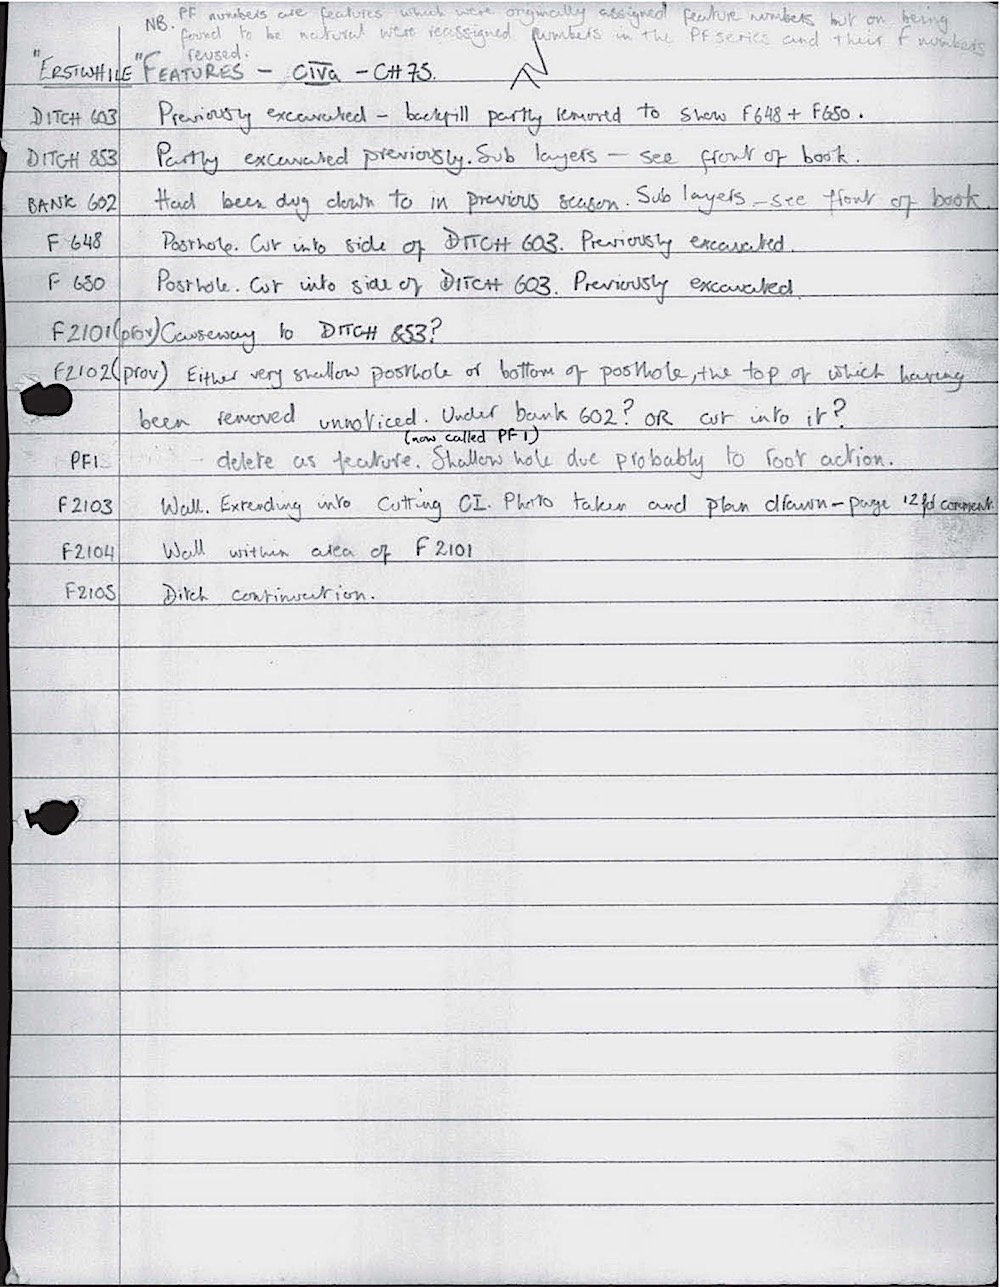 NB. PF numbers are features which were originally assigned feature numbers but on being
found to be natural were reassigned numbers in the PF series and their F numbers
reused.
"ERSTWHILE" FEATURES - CIVa - CH75.
DITCH 603 Previously excavated - backfill partly removed to show F648 + F650.
DITCH 853 Partly excavated previously. Sub layers - see front of book.
BANK 602 Had been dug down to in previous season. Sub layers - see front of book.
F 648 Posthole. Cut into side of DITCH 603. Previously excavated.
F 650 Posthole. Cut into side of DITCH 603. Previously excavated.
F2101 (prov) Causeway to DITCH 853?
F2102 (prov) Either very shallow posthole or bottom of posthole, the top of which having
been removed unnoticed. Under bank 602? OR cut into it?
(now called PF1)
PF1 delete as feature. Shallow hole due probably to root action.
F2103 Wall. Extending into Cutting CI. Photo taken and plan drawn - page 12 for comment
F2104 Wall within area of F2101
F2105 Ditch continuation.